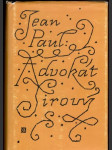 Jean
Paul:
Advokát
Sirový